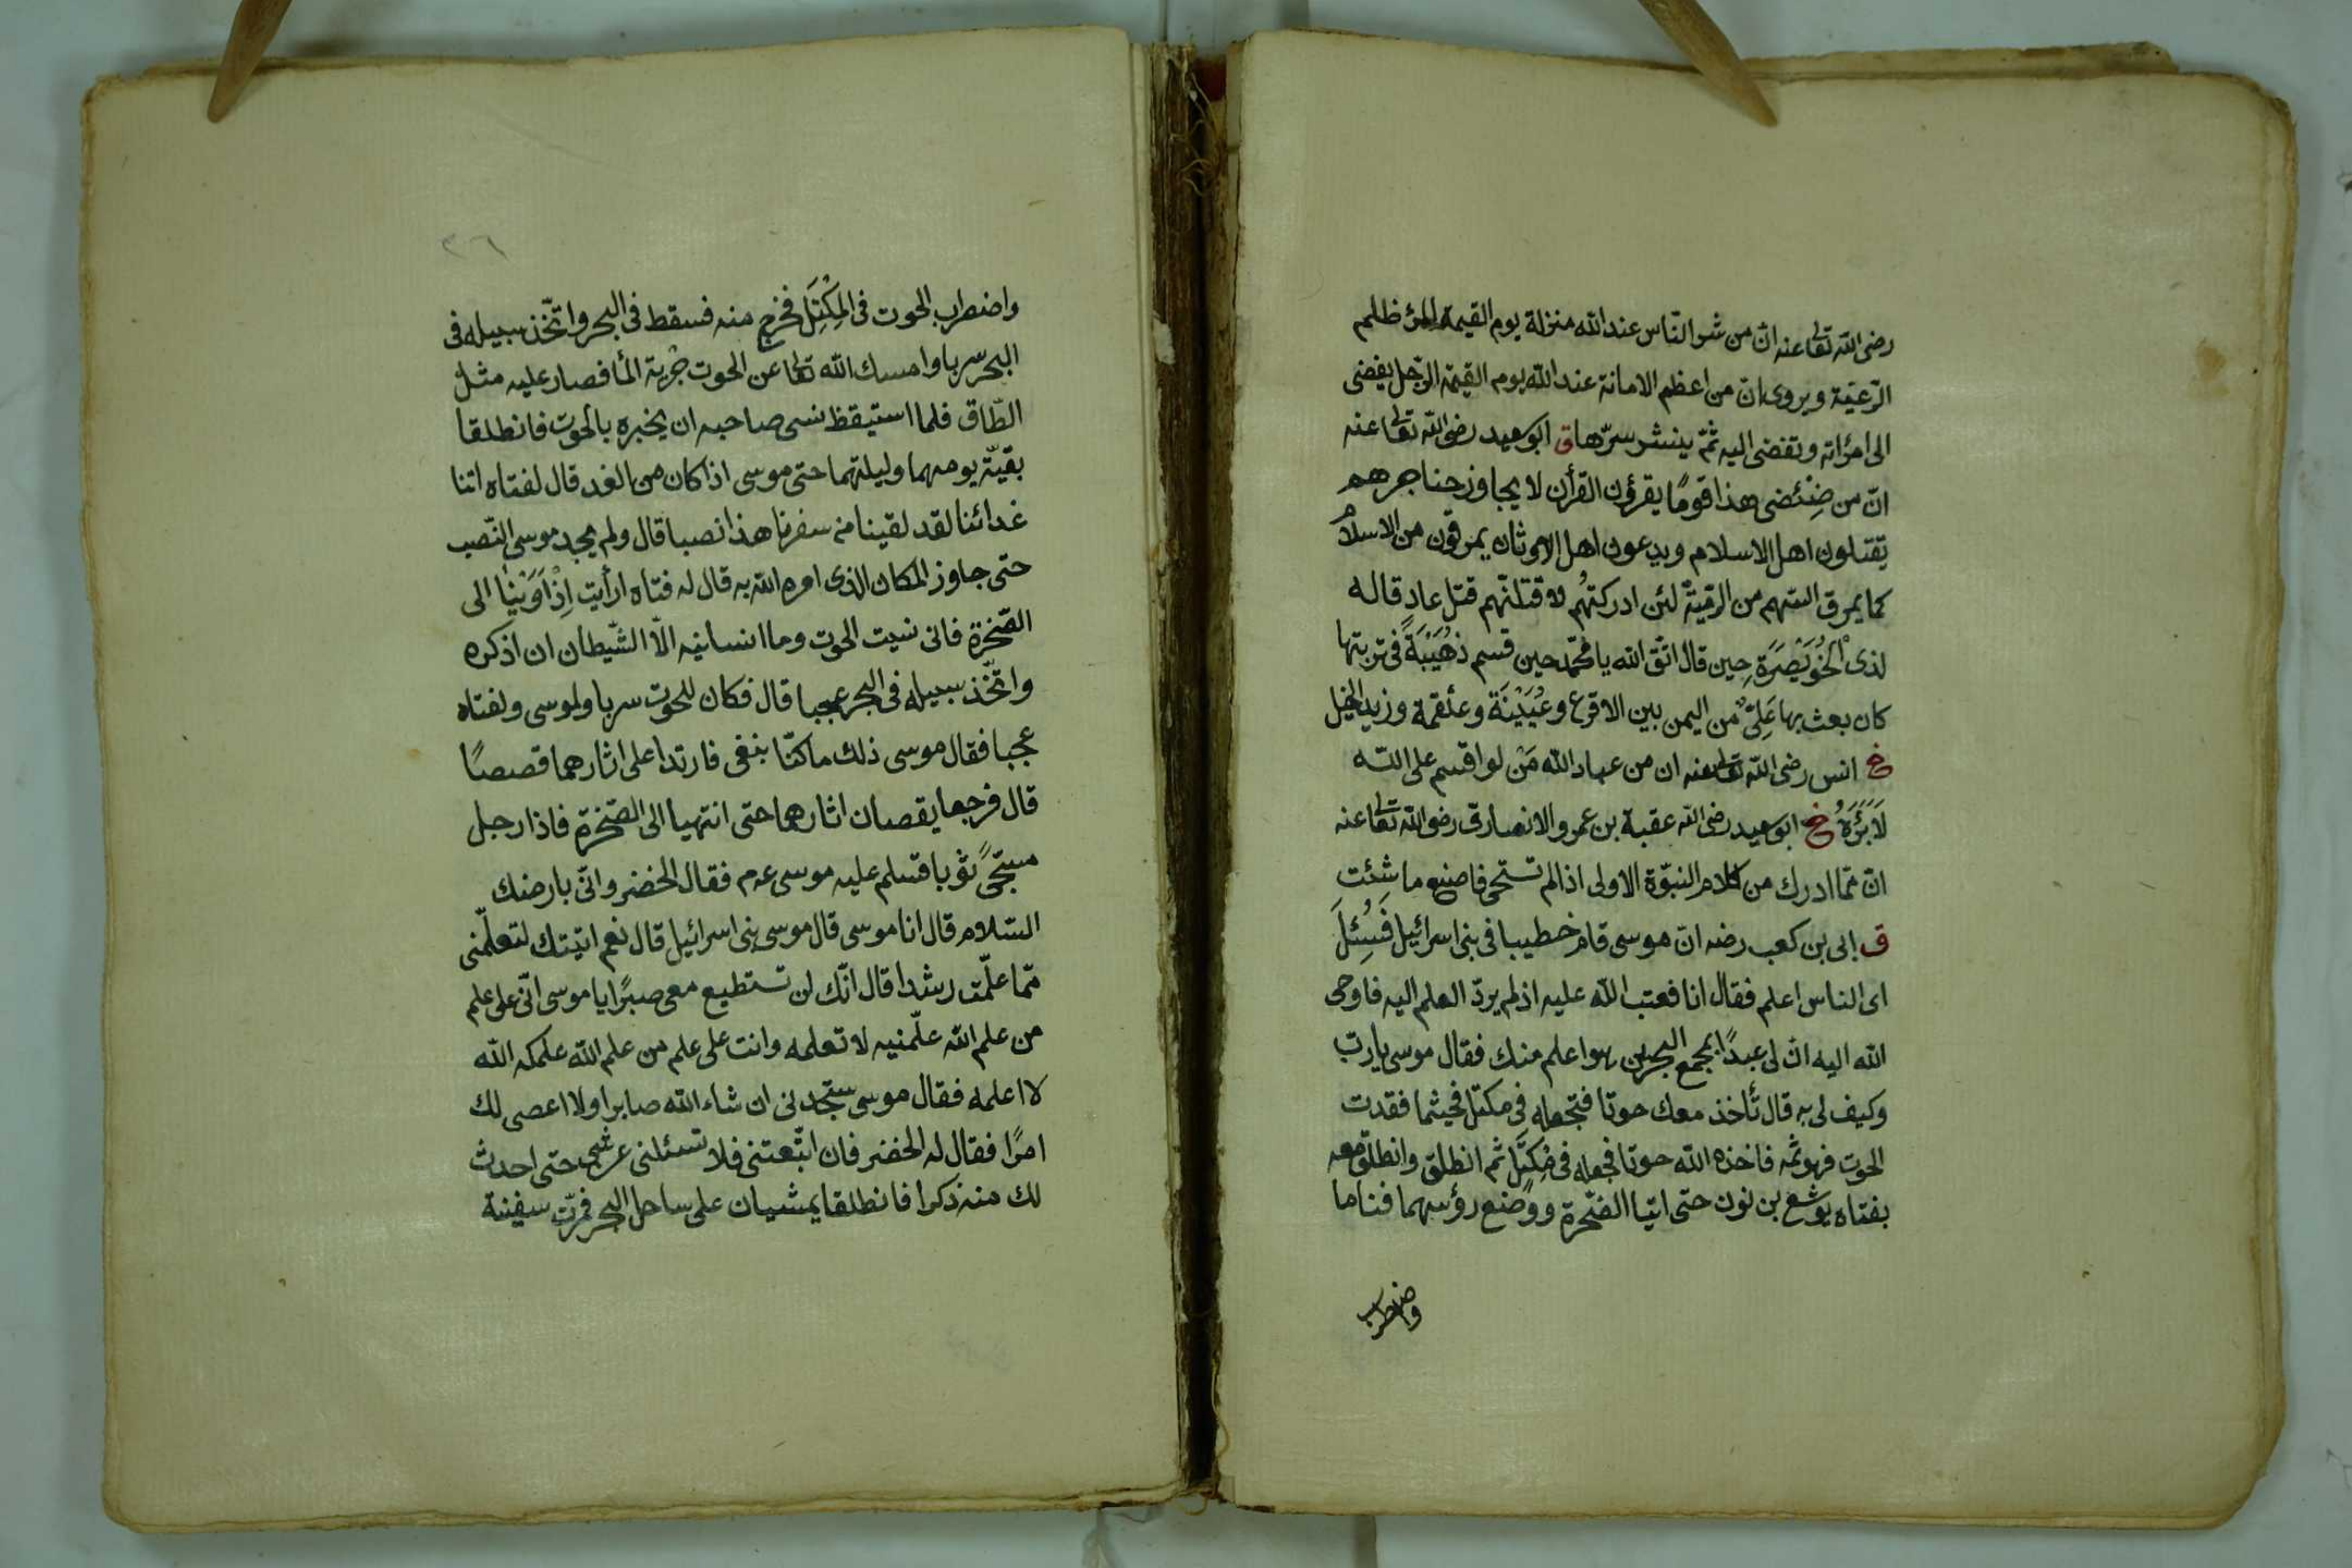 رضى الله تعالى عنه انّ من شر النّاس عند الله منزلة يوم القيمة المرٔ ظلم
الرّعيّة ويروى انّ من اعظم الامانة عند الله يوم القيمة الرّجل يفضى
الى امرٔاته وتفضى اليه ثمّ ينشر سرّها ق ابو سعيد رضى الله تعالى عنه
انّ من ضِئْضئ هذا قومًا يقرؤن القرأن لا يجاوز حناجرهم
يقتلون اهل الاسلام ويدعون اهل الاوثان يمرقون من الاسلام
كما يمرق السّهم من الرّميّة لئن ادركتهُم لاقتلنّهم قتل عادٍ قاله
لذى الْخُوَيْصَرَةِ حين قال اتّق الله يا محمّد حين قسم ذُهَيْبَةً فى تربتها
كان بعث بها عَلِىٌّ من اليمن بين الاقرع وعُيَيْنَةَ وعلقمة وزيد الخيل
خ انس رضى الله تعالى عنه ان من عباد الله مَنْ لو اقسم على الله
لَاَبَرَّهُ خ ابو سعيد رضى الله عقبة بن عمرو الانصارى رضى الله تعالى عنه
انّ ممّا ادرك من كلام النبوّة الاولى اذا لم تستحى فاصنع ما شئت
ق ابى بن كعب رضه انّ موسى قام خطيبا فى بنى اسرائيل فَسُئِلَ
اى الناس اعلم فقال انا فعتب الله عليه اذ لم يردّ العلم اليه فاوحى
الله اليه انّ لى عبدًا بمجمع البحرين هو اعلم منك فقال موسى يا ربّ
وكيف لى به قال تأخذ معك حوتا فتجعله فى مكتل فحيثما فقدت
الحوت فهو ثمّه فاخذه الله حوتا فجعله فى مِكْتَل ثم انطلق وانطلق معه
بفتاه يوشع بن نون حتى اتيا الصّخرة ووضع رؤسهما فناما
واضطرب
٣٦
واضطرب الحوت فى المِكْتَل فخرج منه فسقط فى البحر واتّخذ سبيله فى
البحر سربا وامسك الله تعالى عن الحوت جرية المأ فصار عليه مثل
الطّاق فلما استيقظ نسى صاحبه ان يخبره بالحوت فانطلقا
بقيّة يومهما وليلتهما حتى موسى اذا كان من الغد قال لفتاه اتنا
غدائنا لقد لقينا من سفرنا هذا نصبا قال ولم يجد موسى النّصب
حتى جاوز المكان الذى امره الله به قال له فتاه ارأيت اِذْ اَوَيْنٰا الى
الصّخرة فانى نسيت الحوت وما انسانيه الّا الشّيطان ان اذكره
واتّخذ سبيله فى البحر عجبا قال فكان للحوت سربا ولموسى ولفتاه
عجبا فقال موسى ذلك ما كنّا نبغى فارتدا على اثارهما قصصًا
قال فرجعا يقصان اثارهما حتى انتهيا الى الصّخرة فاذا رجل
مسجّىً ثوبا فسلم عليه موسى عم فقال الخضر وانّى بارضك
السّلام قال انا موسى قال موسى بنى اسرائيل قال نعم اتيتك لتعلّمنى
ممّا علّمت رشدا قال انّك لن تستطيع معى صبرًا يا موسى انّى على علم
من علم الله علّمنيه لا تعلمه وانت على علم من علم الله علمكه الله
لا اعلمه فقال موسى ستجدنى ان شاء الله صابرا ولا اعصى لك
امرًا فقال له الخضر فان اتّبعتنى فلا تسئلنى عن شئ حتى احدث
لك منه ذكرا فانطلقا يمشيان على ساحل البحر فمرّت سفينة